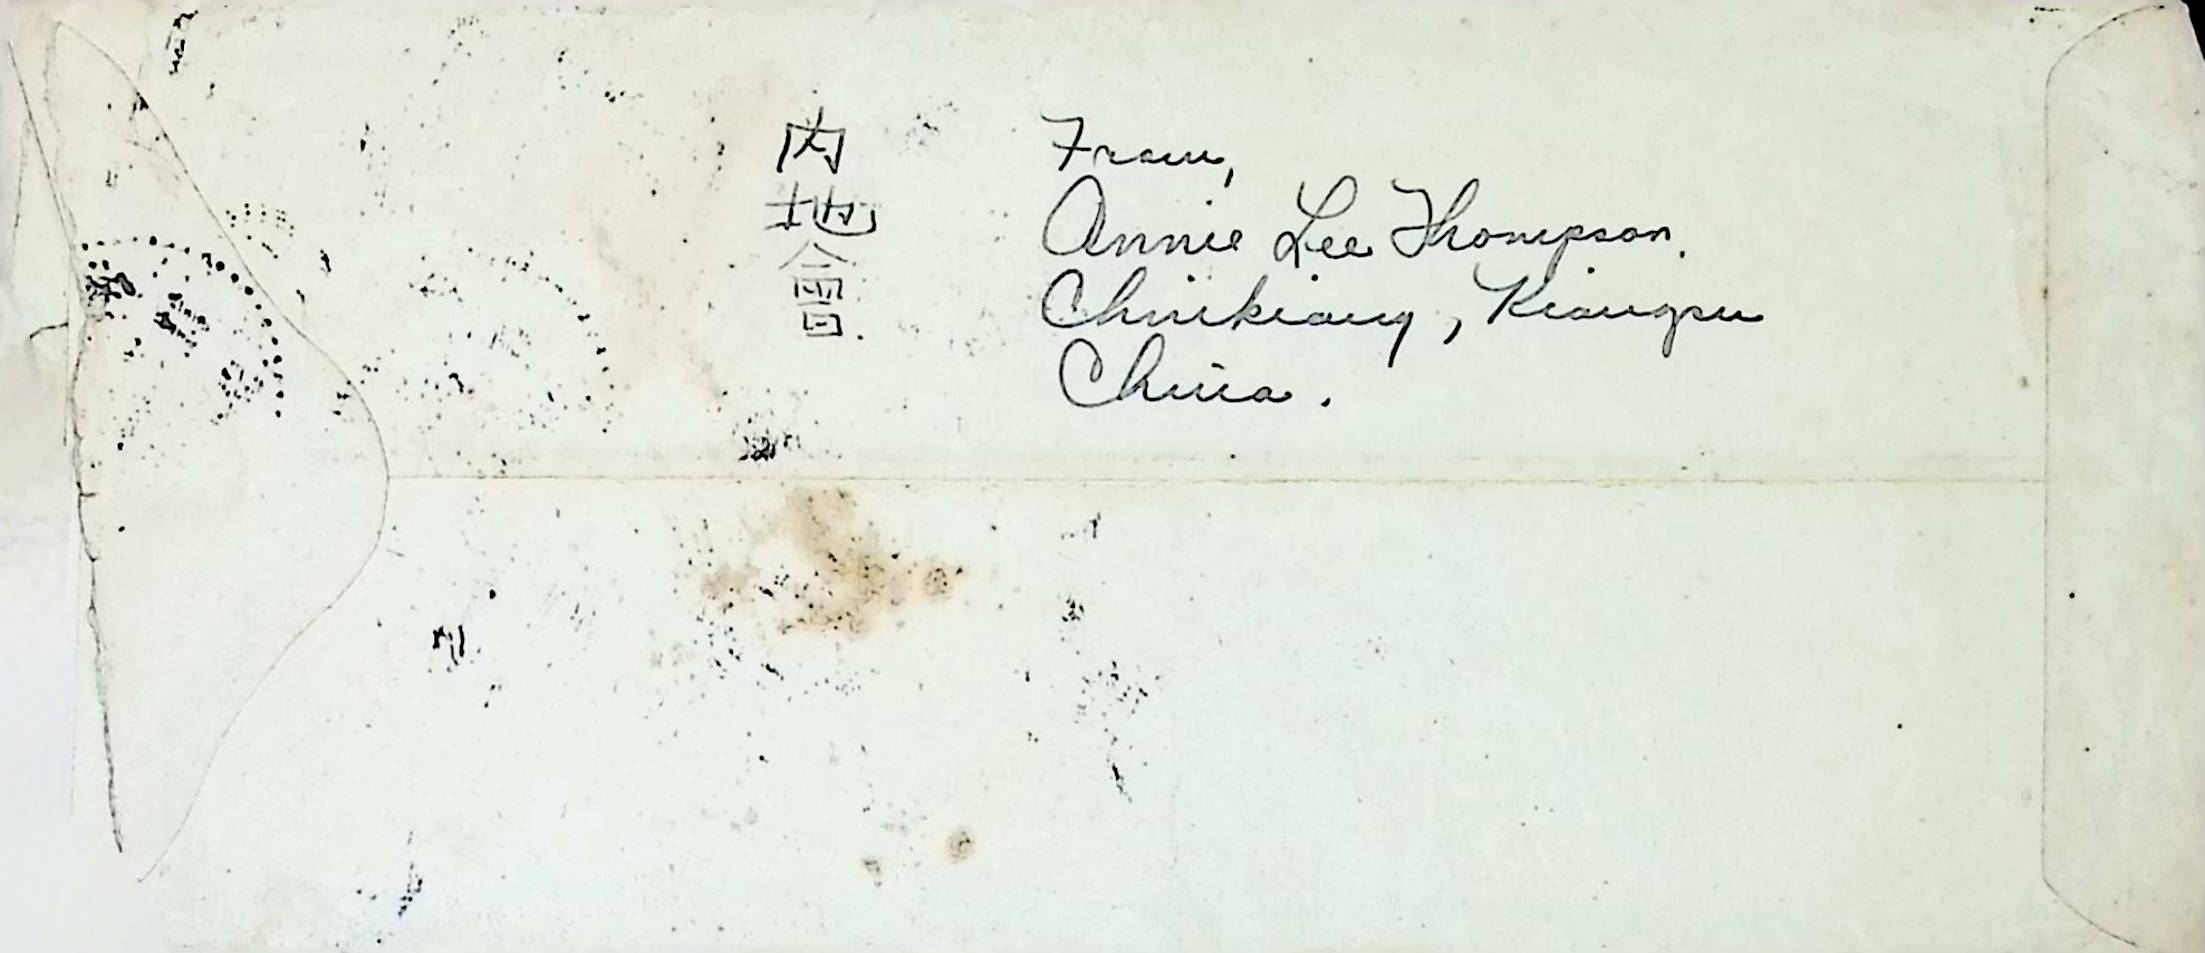 內地會.
From,
Annie Lee Thompson.
Chinkiang, Kiangsu
China.